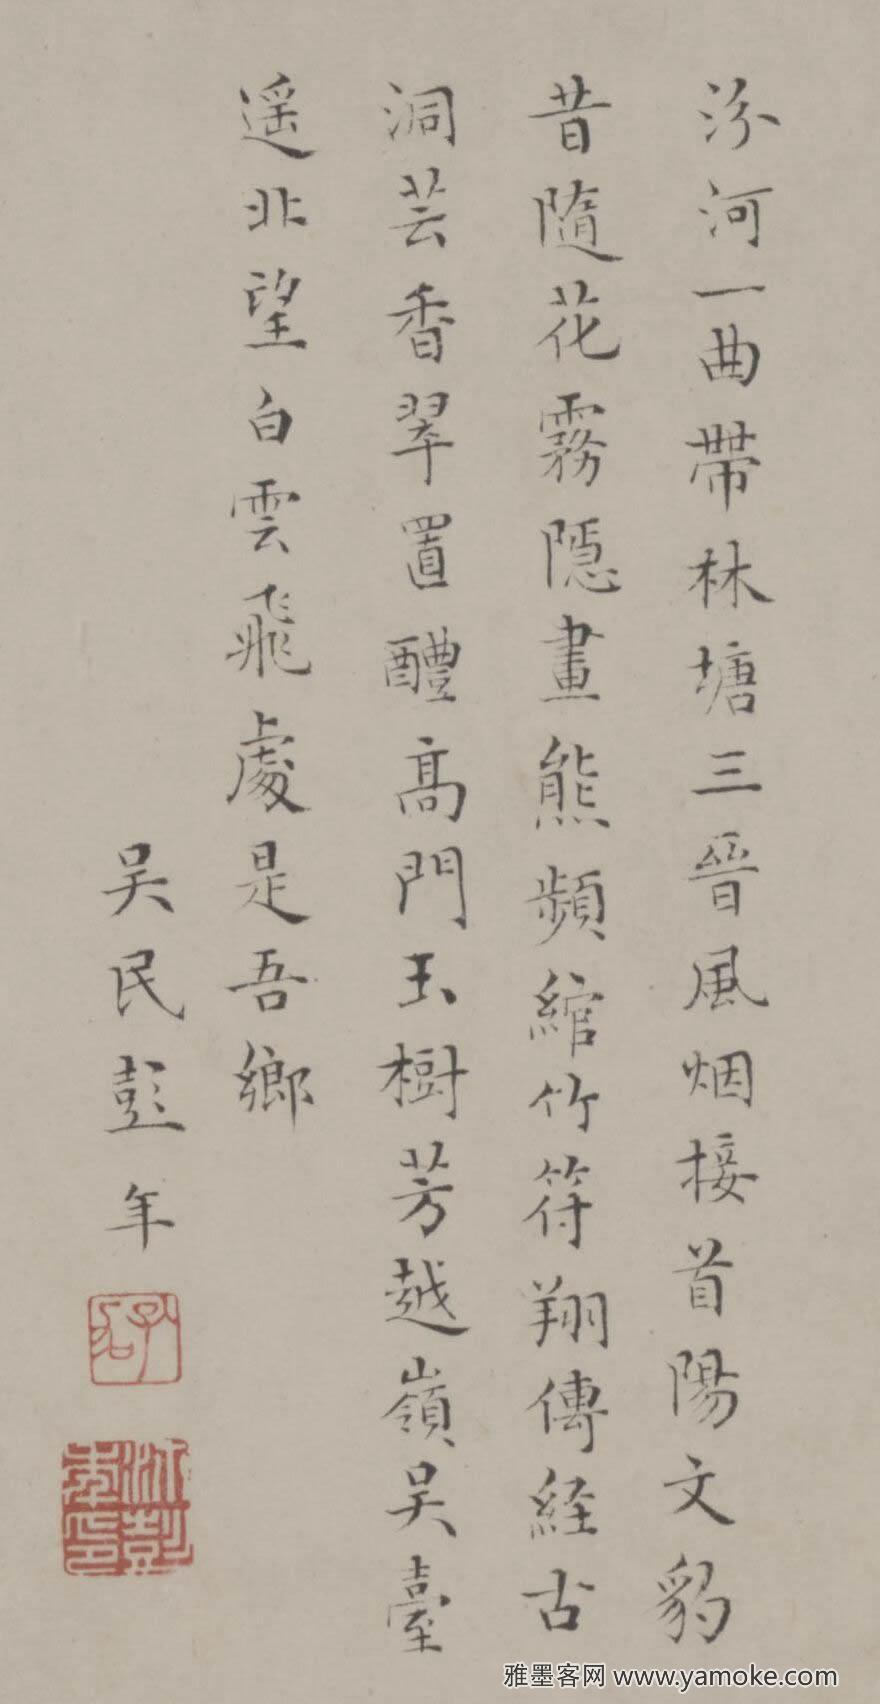 汾河一曲帶林塘三晉風烟接首陽文豹
昔隨花霧隱畫熊頻綰竹符翔傳経古
洞芸香翠置醴高門玉樹芳越嶺吳臺
遥北望白雲飛處是吾鄉
吴民彭年
沈彭年印
雅墨客网 www.yamoke.com